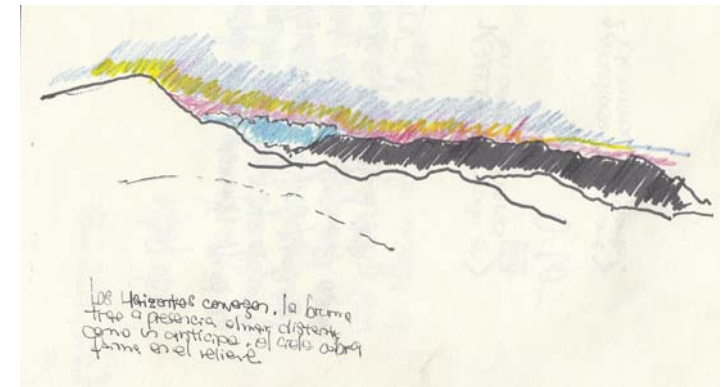 Los Horizontes convergen. la bruma
trae a presencia el mar distante
como un anticipo, el cielo cobra
forma en el relieve